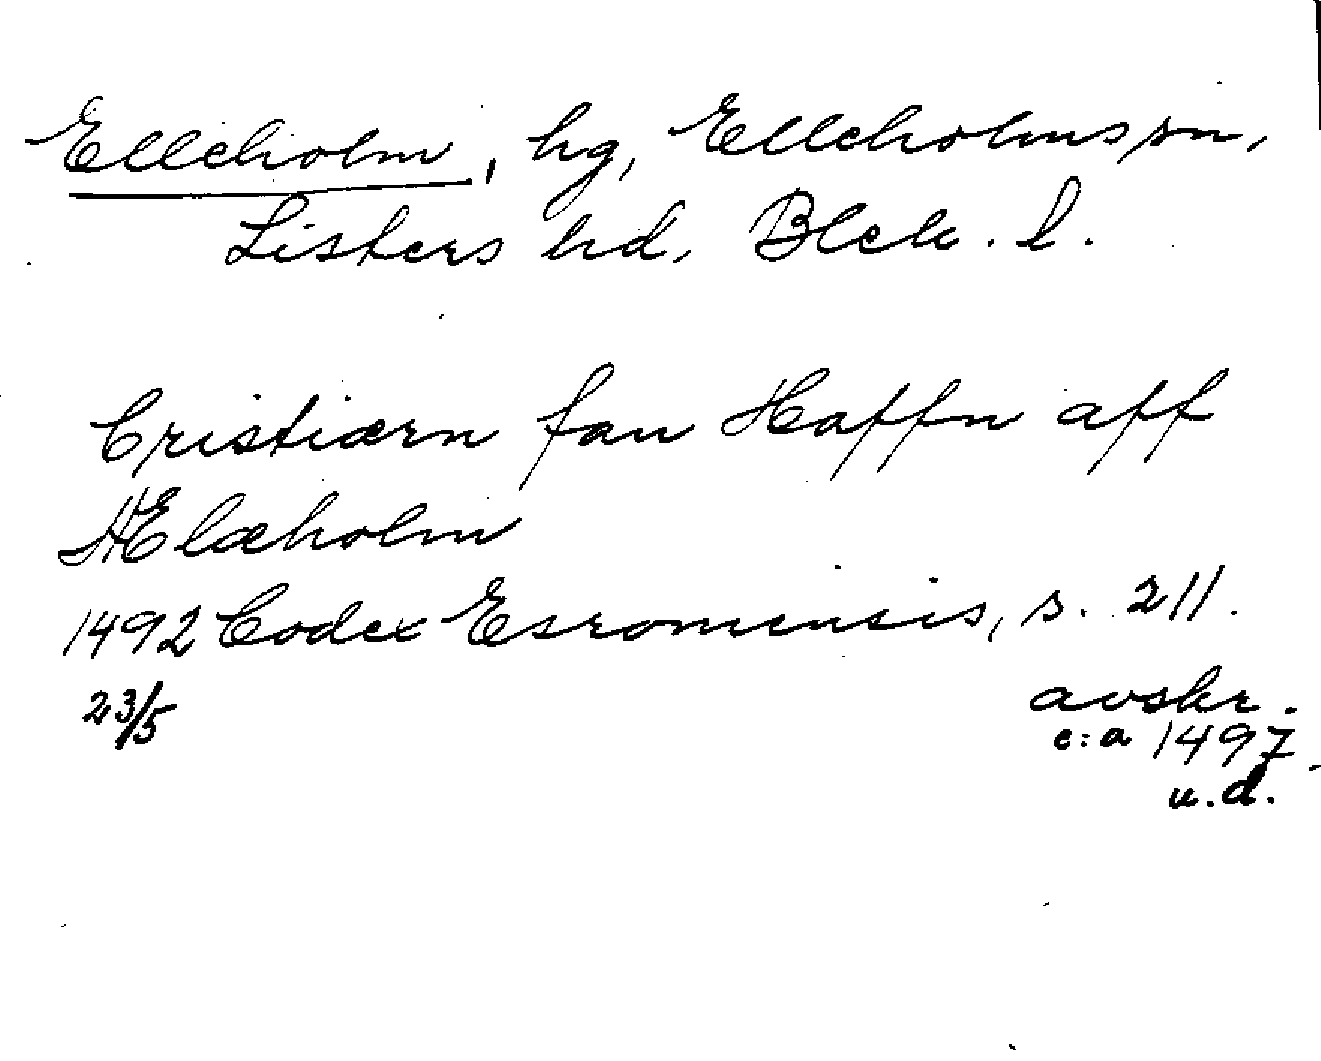 Elleholm, hg, Elleholms sn,
Listers hd, Blek. l.
Cristiærn fan Haffn aff
Elæholm
1492 Codex Esromensis, s. 211.
23/5 avskr.
c:a 1497
u.d.